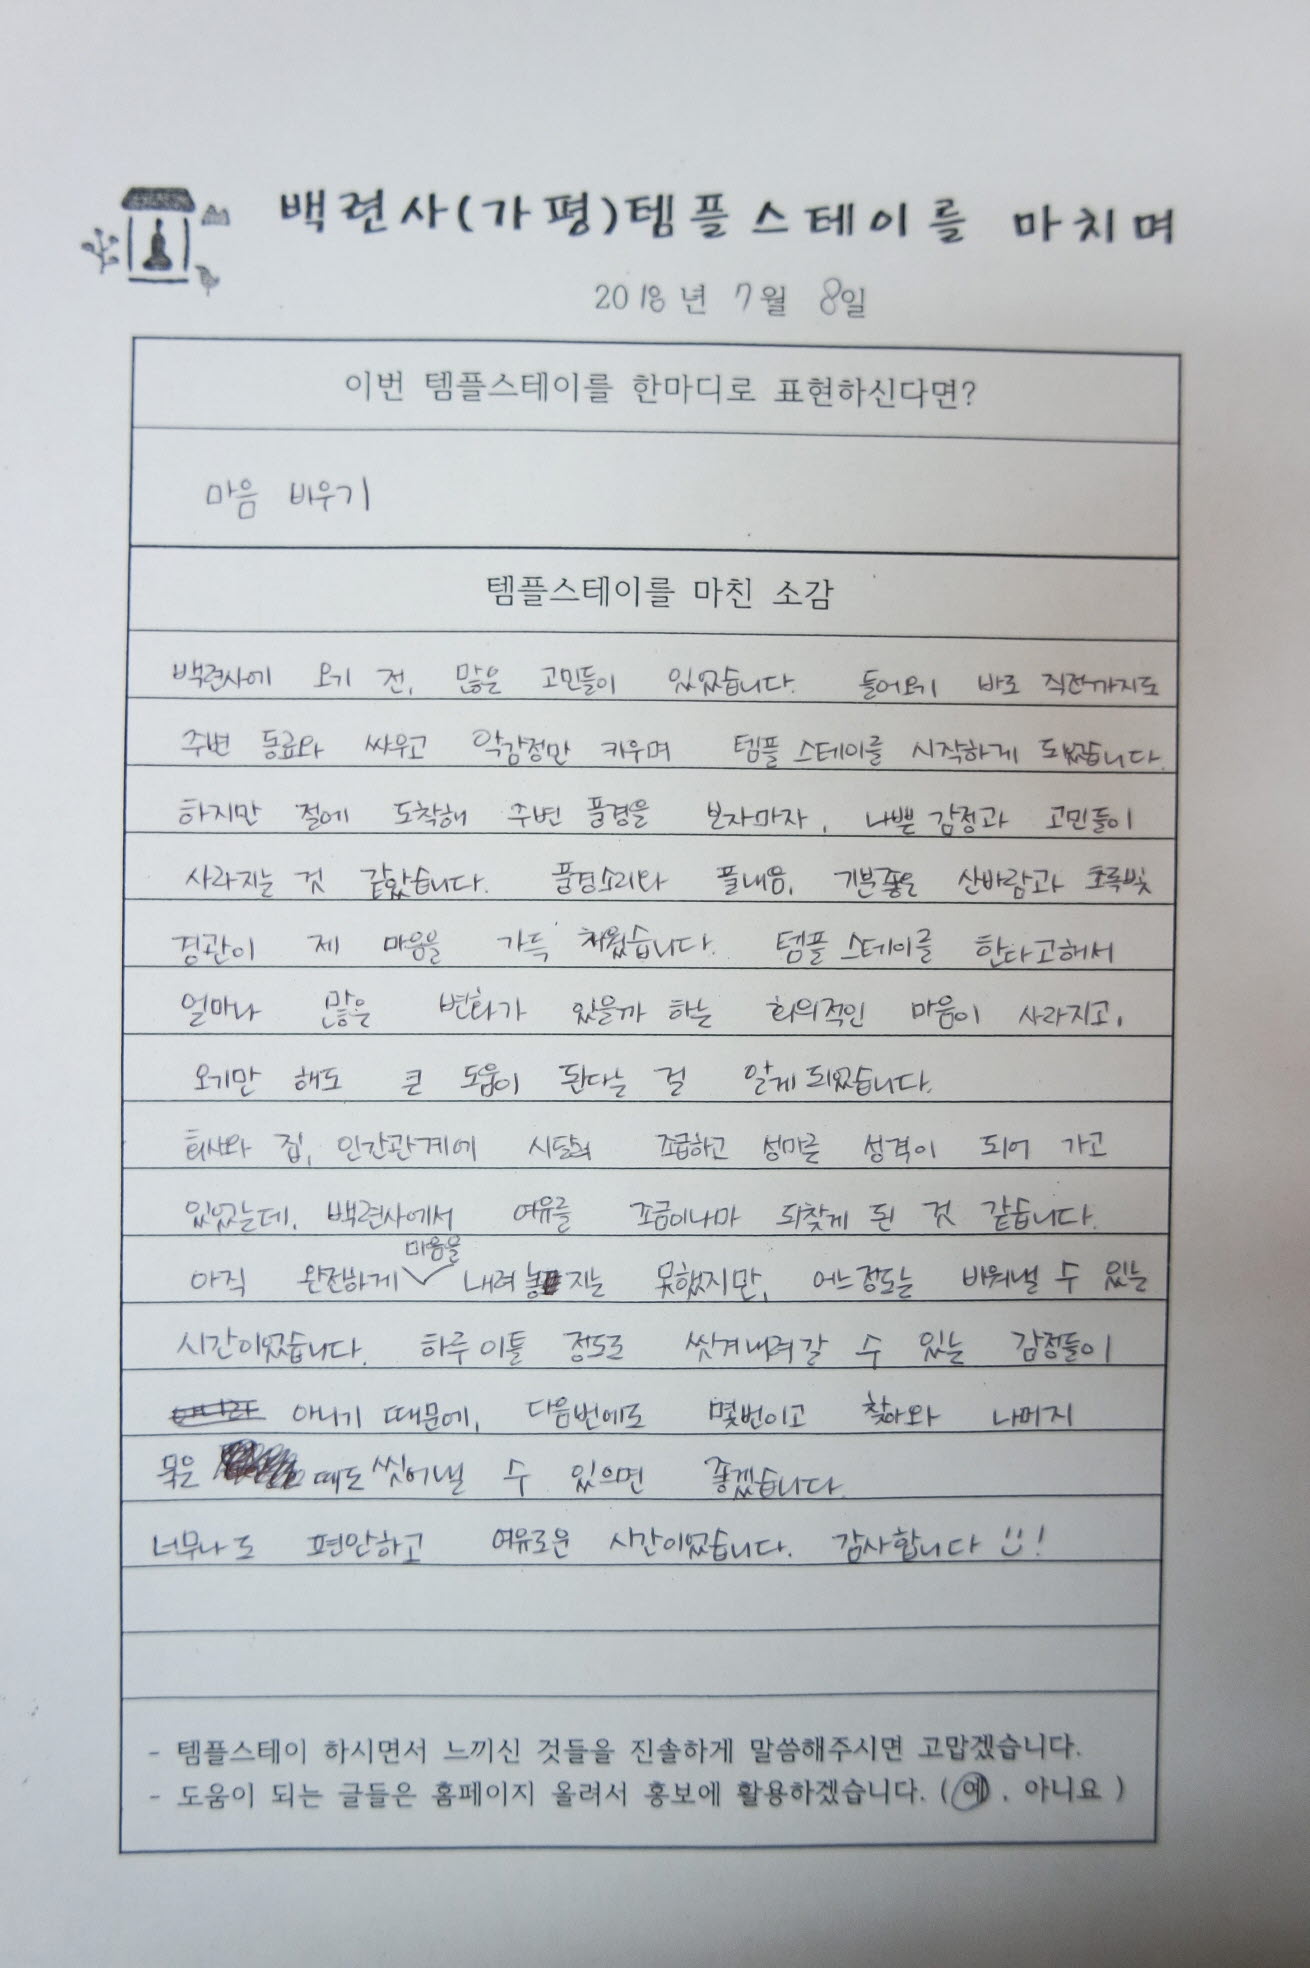 백련사(가평)템플스테이를 마치며
2018년 7월 8일
이번 템플스테이를 한마디로 표현하신다면?
마음 비우기
템플스테이를 마친 소감
백련사에 오기 전, 많은 고민들이 있었습니다. 들어오기 바로 직전까지도
주변 동료와 싸우고 악감정만 키우며 템플 스테이를 시작하게 되었습니다.
하지만 절에 도착해 주변 풍경을 보자마자, 나쁜 감정과 고민들이
사라지는 것 같았습니다. 풍경소리와 풀내음, 기분좋은 산바람과 초록빛
경관이 제 마음을 가득 채웠습니다. 템플 스테이를 한다고해서
얼마나 많은 변화가 있을까 하는 회의적인 마음이 사라지고,
오기만 해도 큰 도움이 된다는 걸 알게 되었습니다.
회사와 집, 인간관계에 시달려 조급하고 성마른 성격이 되어 가고
있었는데, 백련사에서 여유를 조금이나마 되찾게 된 것 같습니다.
아직 완전하게 마음을 내려 놓지는 못했지만, 어느정도는 비워낼 수 있는
시간이었습니다. 하루 이틀 정도로 씻겨내려갈 수 있는 감정들이
아니기 때문에, 다음번에도 몇번이고 찾아와 나머지
묵은 때도 씻어낼 수 있으면 좋겠습니다.
너무나도 편안하고 여유로운 시간이었습니다. 감사합니다 !
- 템플스테이 하시면서 느끼신 것들을 진솔하게 말씀해주시면 고맙겠습니다.
- 도움이 되는 글들은 홈페이지 올려서 홍보에 활용하겠습니다. ( 예 , 아니요 )